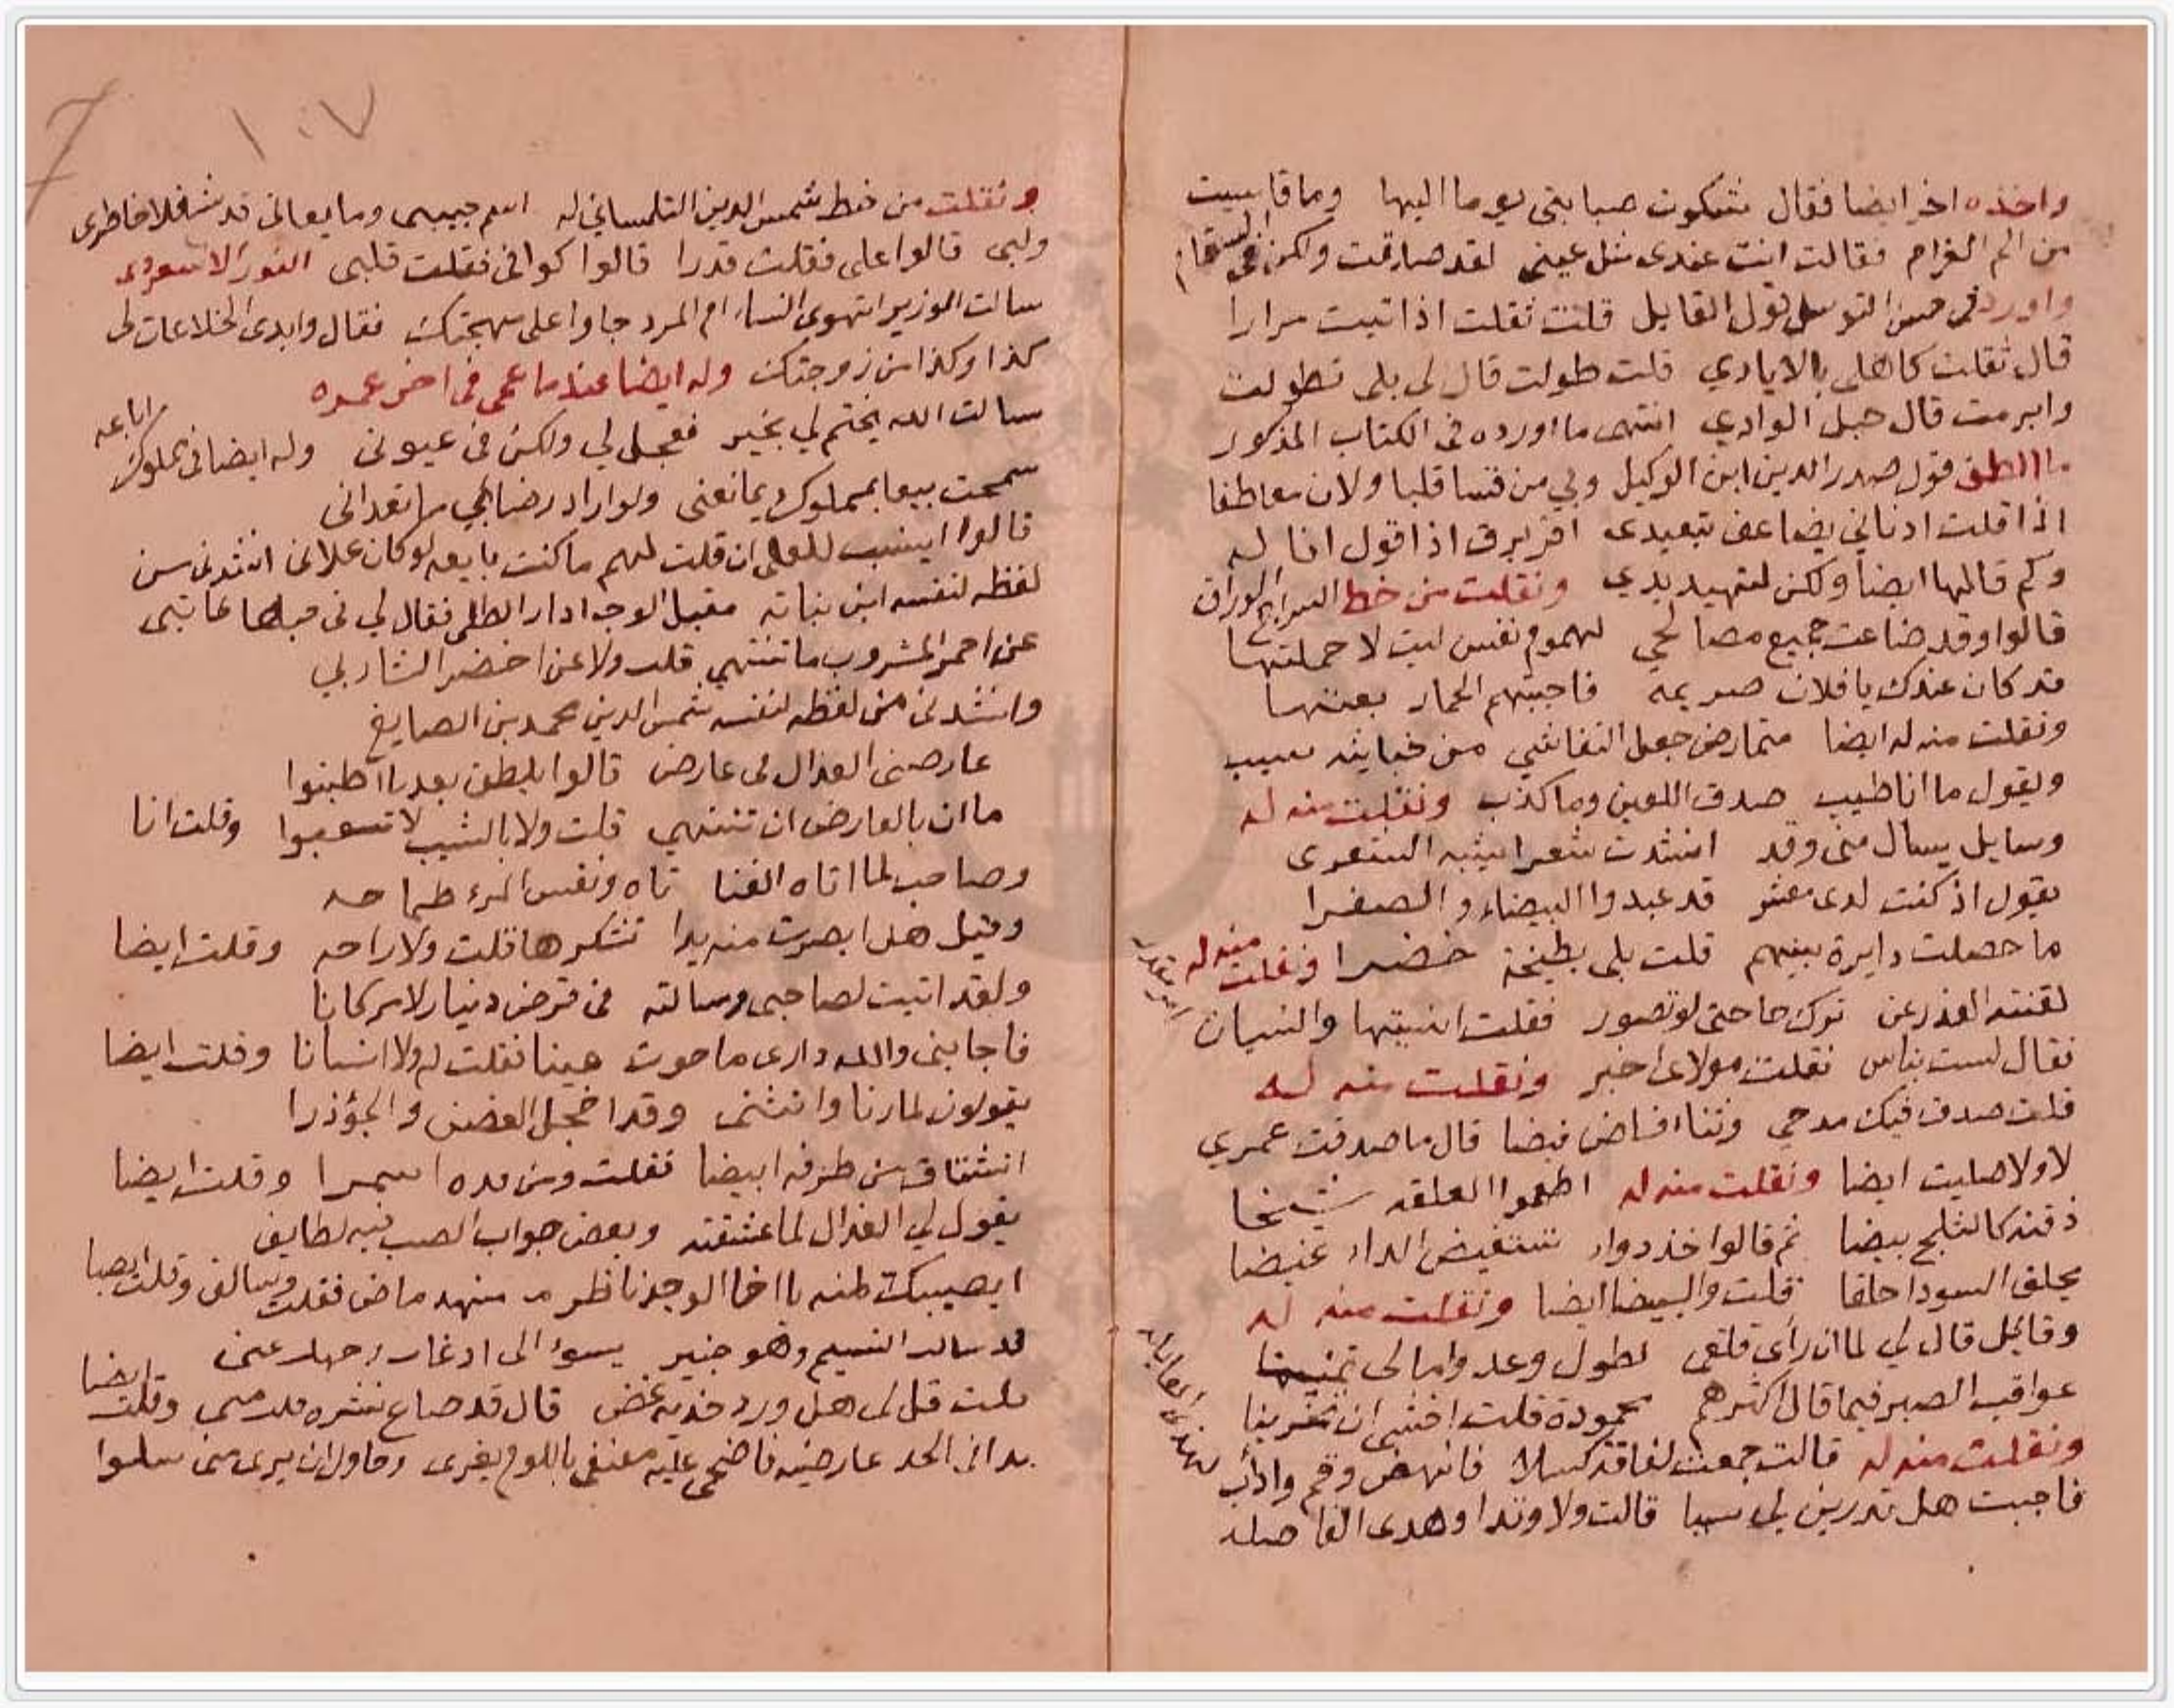 واخذه اخر ايضا فقال شكوت صبابتي يوما اليها وما قاسيت
من الم الغرام فقالت انت عندي مثل عيني لقد صدقت ولكن في السقام
واورد في حسن التوسل قول القايل قلت ثقلت اذ اتيت مرارا
قال ثقلت كاهلي بالايادي قلت طولت قال لي بلى تطولت
وابرمت قال حبل الودادي انتهى ما اورده في الكتاب المذكور
ما الطف قول صدر الدين ابن الوكيل وبي من قسا قلبا ولان معاطفا
اذا قلت ادناني يضاعف تبعيدي اقر برق اذ اقول انا له
وكم قالها ايضا ولكن لتهديدي ونقلت من خط السراج الوراق
قالوا وقد ضاعت جميع مصالحي لهموم نفس ليت لا حملتها
قد كان عندك يا فلان صريمه فاجبتهم الحمار بعتها
ونقلت منه له ايضا متمارض جعل التفاشي من خباثته سبب
ويقول ما انا طيب صدق اللعين وما كذب ونقلت منه له
وسايل يسال مني وقد انشدت شعرا يشبه الشعرى
يقول اذ كنت لدى معشر قد عبدوا البيضاء والصفرا
ما حصلت دايرة بينهم قلت بلى بطيخة خضرا ونقلت منه له
لقنته العذر عن تركها حتى لو تصور فقلت انسيتها والنسيان
فقال لست بناس فقلت مولاي اخبر ونقلت منه له
قلت صدق فيك مدحي وثناء فاض فيضا قال ما صدقت عمري
لا ولا صليت ايضا ونقلت منه له اطعموا العلقه شيخا
ذقنه كالثلج بيضا ثم قالوا خذ دواء ستغيض الداء غيضا
يحلق السودا حلقا قلت والبيضا ايضا ونقلت منه له
وقائل قال لي لما ان راى قلقي لطول وعد وامالي تمنيها
عواقب الصبر فيما قال اكثرهم محمودة قلت اخشى ان تخرينا
ونقلت منه له قالت جمعت لفاقة كسلا فانهض وقم وادأب
فاجبت هل تدرين لي سببا قالت ولا وتدا وهدى الفاصله
١٠٧
ونقلت من خط شمس الدين التلمساني له اسم حبيبي وما يعاني قد شغلا خاطري
ولبي قالوا علي فقلت قدرا قالوا كوافي فقلت قلبي النور الاسعردي
سالت الوزير اتهوى النساء ام المرد جاوا على مهجتك فقال وابدى الخلاعات لي
كذا وكذا من زوجتك وله ايضا عندما عمي في اخر عمره
سالت الله يختم لي بخير فعجل لي ولكن في عيوني وله ايضا في مملوك اباعه
سمحت بيعا بمملوك يمانعني ولو اراد رضائي ما تعداني
قالوا اينسب للعلان قلت لهم ما كنت بايعه لو كان علاني انشدني من
لفظه لنفسه ابن نباته مقبل الوجه ادار الطلى فقال لي في حبها عاتبي
عن احمر المشروب ما تنتهي قلت ولا عن اخضر الشارب
وانشدني من لفظه لنفسه شمس الدين محمد بن الصايغ
عارضني العذال في عارض قالوا بلطف بعدما اطنبوا
ما ان بالعارض ان تنتهي قلت ولا بالشيب لا تتعبوا وقلت انا
وصاحب لما اتاه الغنا تاه ونفس المرء طماحه
وقيل هل ابصرت منه يدا تشكرها قلت ولا راحه وقلت ايضا
ولقد اتيت لصاحبي وسالته في قرض دينار لامر كانا
فاجابني والله داري ما حوت عينا فقلت له ولا انسانا وقلت ايضا
يقولون لما رنا وانثنى وقد اخجل الغصن والجؤذرا
انشتاق من طرفه ابيضا فقلت ومن قده اسمرا وقلت ايضا
يقول لي العذال لما عشقته وبعض جواب الصب فيه لطايف
ايصيبك منه يا اخا الوجد ناظر منه ماض فقلت وسالف وقلت ايضا
قد سالت النسيم وهو خبير
قلت قل لي هل ورد خديه غض قال قد ضاع نشره قلت مني وقلت ايضا
بدا في الخد عارضه فاضحى عليه معنفي باللوم يغري وحاول ان يرى مني سلوا